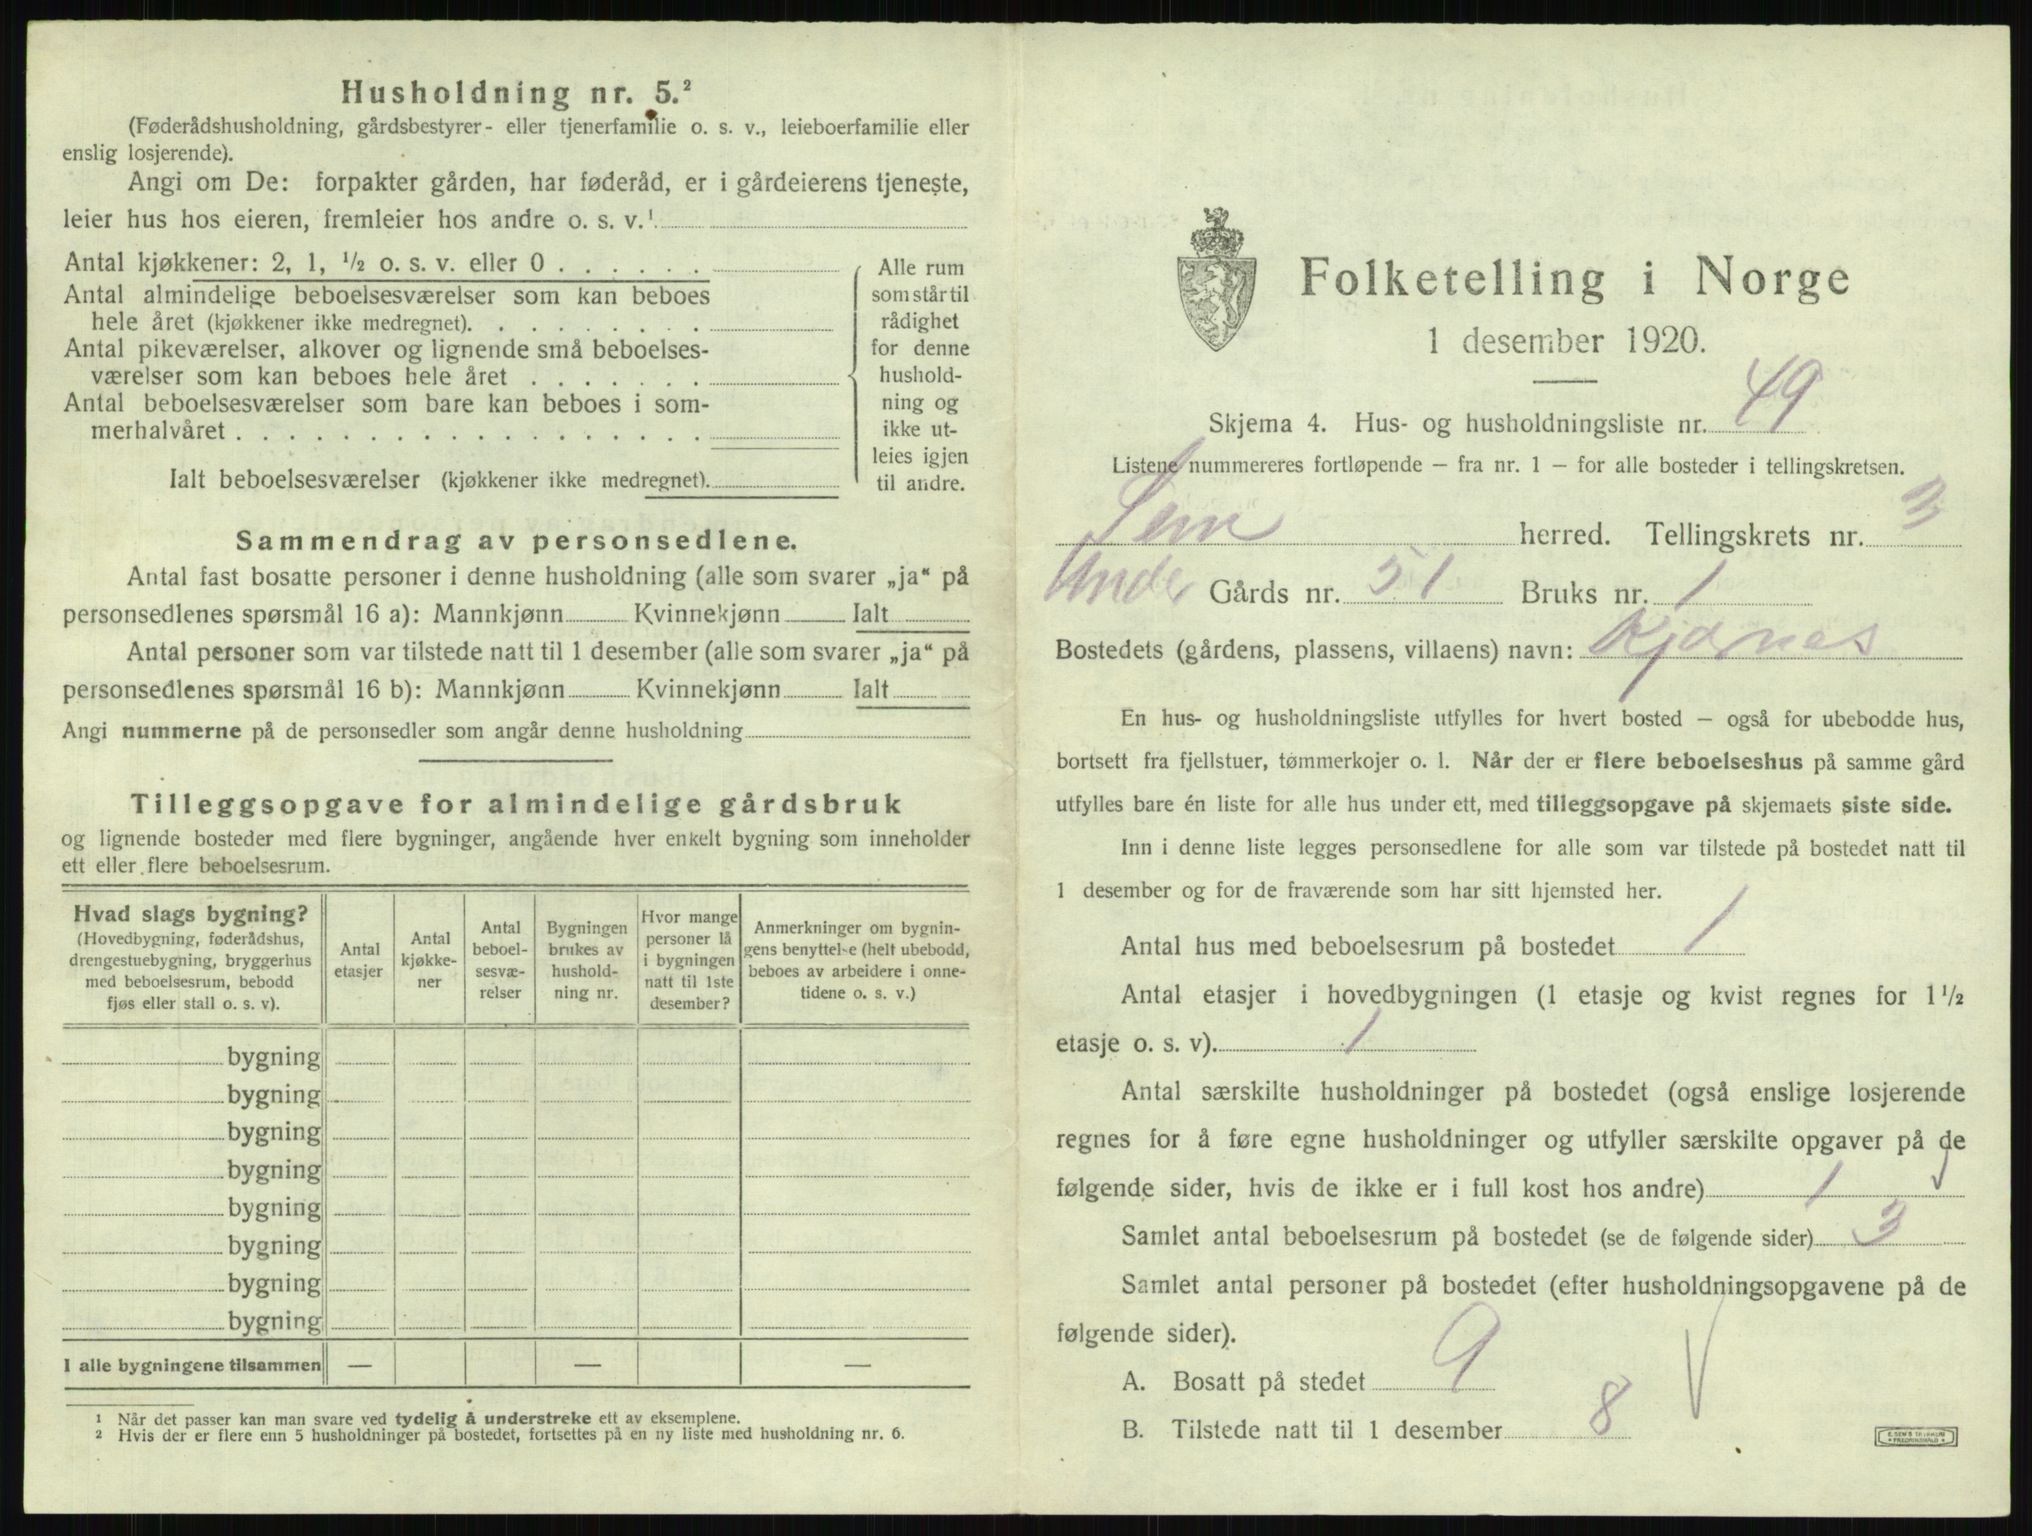 Husholdning nr. 5.²
(Føderådshusholdning, gårdsbestyrer- eller tjenerfamilie o. s. v., leieboerfamilie eller
enslig losjerende).
Angi om De: forpakter gården, har føderåd, er i gårdeierens tjeneste,
leier hus hos eieren, fremleier hos andre o. s. v.¹
Antal kjøkkener: 2, 1, ½ o. s. v. eller 0 . . . . . .
Antal almindelige beboelsesværelser som kan beboes
hele året (kjøkkener ikke medregnet). . . . . . . . .
Antal pikeværelser, alkover og lignende små beboelses-
værelser som kan beboes hele året . . . . . . .
Antal beboelsesværelser som bare kan beboes i som-
merhalvåret . . . . . . . . . . . . . . . . . .
Ialt beboelsesværelser (kjøkkener ikke medregnet).
Alle rum
som står til
rådighet
for denne
hushold-
ning og
ikke ut-
leies igjen
til andre.
Sammendrag av personsedlene.
Antal fast bosatte personer i denne husholdning (alle som svarer „ja“ på
personsedlenes spørsmål 16 a): Mannkjønn Kvinnekjønn Ialt
Antal personer som var tilstede natt til 1 desember (alle som svarer „ja“ på
personsedlenes spørsmål 16 b): Mannkjønn Kvinnekjønn Ialt
Angi nummerne på de personsedler som angår denne husholdning
Tilleggsopgave for almindelige gårdsbruk
og lignende bosteder med flere bygninger, angående hver enkelt bygning som inneholder
ett eller flere beboelsesrum.
Hvad slags bygning?
(Hovedbygning, føderådshus,
drengestuebygning, bryggerhus
med beboelsesrum, bebodd
fjøs eller stall o. s. v).
Antal
etasjer
Antal
kjøkke-
ner
Antal
beboel-
sesvæ-
relser
Bygningen
brukes av
hushold-
ning nr.
Hvor mange
personer lå
i bygningen
natt til 1ste
desember?
Anmerkninger om bygnin-
gens benyttelse (helt ubebodd,
beboes av arbeidere i onne-
tidene o. s. v.)
bygning
bygning
bygning
bygning
bygning
bygning
bygning
bygning
I alle bygningene tilsammen — — —
¹ Når det passer kan man svare ved tydelig å understreke ett av eksemplene.
² Hvis der er flere enn 5 husholdninger på bostedet, fortsettes på en ny liste med husholdning nr. 6.
Folketelling i Norge
1 desember 1920.
Skjema 4. Hus- og husholdningsliste nr. 49
Listene nummereres fortløpende – fra nr. 1 – for alle bosteder i tellingskretsen.
Sem herred. Tellingskrets nr. 3
Under Gårds nr. 51 Bruks nr. 1
Bostedets (gårdens, plassens, villaens) navn: Kjærnes
En hus- og husholdningsliste utfylles for hvert bosted – også for ubebodde hus,
bortsett fra fjellstuer, tømmerkojer o. l. Når der er flere beboelseshus på samme gård
utfylles bare én liste for alle hus under ett, med tilleggsopgave på skjemaets siste side.
Inn i denne liste legges personsedlene for alle som var tilstede på bostedet natt til
1 desember og for de fraværende som har sitt hjemsted her.
Antal hus med beboelsesrum på bostedet 1
Antal etasjer i hovedbygningen (1 etasje og kvist regnes for 1½
etasje o. s. v). 1
Antal særskilte husholdninger på bostedet (også enslige losjerende
regnes for å føre egne husholdninger og utfyller særskilte opgaver på de
følgende sider, hvis de ikke er i full kost hos andre) 1
Samlet antal beboelsesrum på bostedet (se de følgende sider) 3
Samlet antal personer på bostedet (efter husholdningsopgavene på de
følgende sider).
A. Bosatt på stedet 9
B. Tilstede natt til 1 desember 8